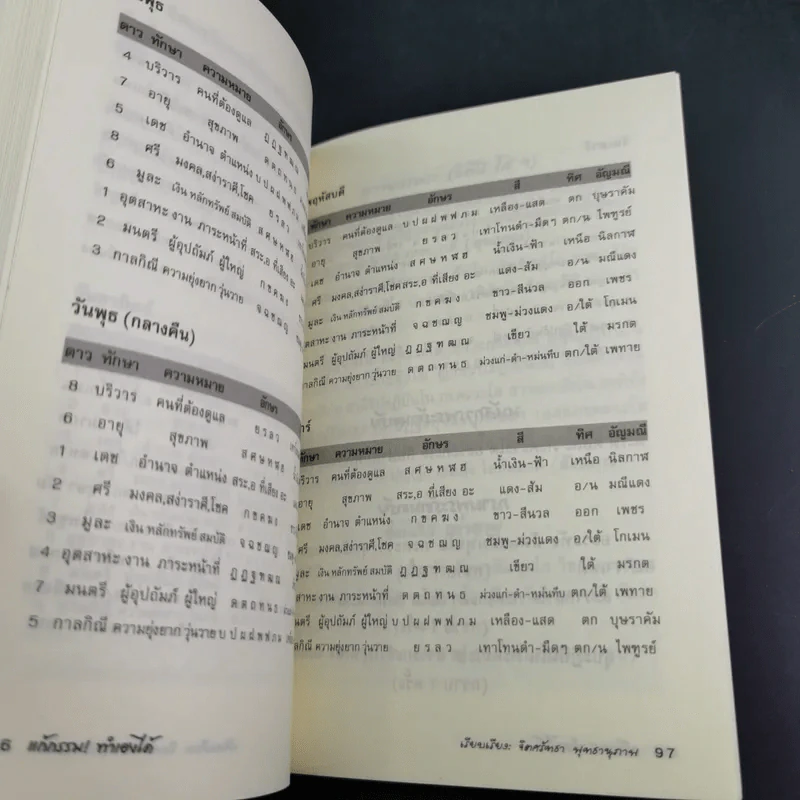 พุธ
ดาว ทักษา ความหมาย อักษา
4 บริวาร คนที่ต้องดูแล ฎฏฐฑฒณ
7 อายุ สุขภาพ ดตถทนธ
5 เดช อำนาจ ตำแหน่ง บปผฝพฟภม
8 ศรี มงคล,สง่าราศี,โชค ยรลว
6 มูละ เงิน หลักทรัพย์ สมบัติ สศษหฬฮ
1 อุตสาหะ งาน ภาระหน้าที่ สระ,อ ที่เสียง อะ
2 มนตรี ผู้อุปถัมภ์ ผู้ใหญ่ กขคฆง
3 กาลกิณี ความยุ่งยาก วุ่นวาย จฉชซญ
วันพุธ (กลางคืน)
ดาว ทักษา ความหมาย อักษา
8 บริวาร คนที่ต้องดูแล ยรลว
6 อายุ สุขภาพ สศษหฬฮ
1 เดช อำนาจ ตำแหน่ง สระ,อ ที่เสียง อะ
2 ศรี มงคล,สง่าราศี,โชค กขคฆง
3 มูละ เงิน หลักทรัพย์ สมบัติ จฉชซฌญ
4 อุตสาหะ งาน ภาระหน้าที่ ฎฏฐฑฒณ
7 มนตรี ผู้อุปถัมภ์ ผู้ใหญ่ ดตถทนธ
5 กาลกิณี ความยุ่งยาก วุ่นวาย บปผฝพฟภม
6 แก้กรรม! ทำเองได้
พฤหัสบดี
ทักษา ความหมาย อักษร สี ทิศ อัญมณี
บริวาร คนที่ต้องดูแล บปผฝพฟภม เหลือง-แสด ตก บุษราคัม
อายุ สุขภาพ ยรลว เทาโทนดำ-มืดๆ ตก/น ไพฑูรย์
เดช อำนาจ ตำแหน่ง สศษหฬฮ น้ำเงิน-ฟ้า เหนือ นิลกาฬ
ศรี มงคล,สง่าราศี,โชค สระ,อ ที่เสียง อะ แดง-ส้ม อ/น มณีแดง
มูละ เงิน หลักทรัพย์ สมบัติ กขคฆง ขาว-สีนวล ออก เพชร
อุตสาหะ งาน ภาระหน้าที่ จฉชซฌญ ชมพู-ม่วงแดง อ/ใต้ โกเมน
มนตรี ผู้อุปถัมภ์ ผู้ใหญ่ ฎฏฐฑฒณ เขียว ใต้ มรกต
กาลกิณี ความยุ่งยาก วุ่นวาย ดตถทนธ ม่วงแก่-ดำ-หม่นทึบ ตก/ใต้ เพทาย
ทักษา ความหมาย อักษร สี ทิศ อัญมณี
บริวาร คนที่ต้องดูแล สศษหฬฮ น้ำเงิน-ฟ้า เหนือ นิลกาฬ
อายุ สุขภาพ สระ,อ ที่เสียง อะ แดง-ส้ม อ/น มณีแดง
เดช อำนาจ ตำแหน่ง กขคฆง ขาว-สีนวล ออก เพชร
ศรี มงคล,สง่าราศี,โชค จฉชซฌญ ชมพู-ม่วงแดง อ/ใต้ โกเมน
มูละ เงิน หลักทรัพย์ สมบัติ ฎฏฐฑฒณ เขียว ใต้ มรกต
อุตสาหะ งาน ภาระหน้าที่ ดตถทนธ ม่วงแก่-ดำ-หม่นทึบ ตก/ใต้ เพทาย
มนตรี ผู้อุปถัมภ์ ผู้ใหญ่ บปผฝพฟภม เหลือง-แสด ตก บุษราคัม
กาลกิณี ความยุ่งยาก วุ่นวาย ยรลว เทาโทนดำ-มืดๆ ตก/น ไพฑูรย์
เรียบเรียง: จิตศรัทธา พุทธานุภาพ 97